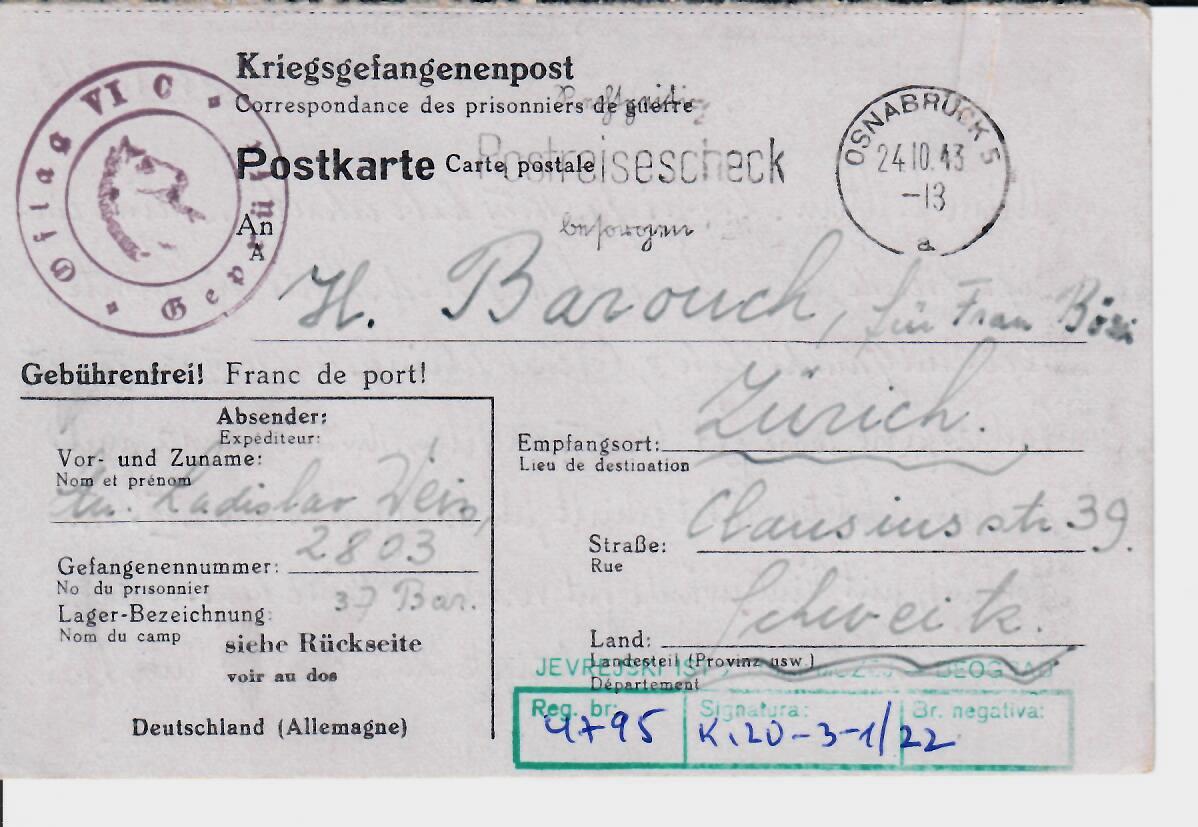 Kriegsgefangenenpost
Correspondance des prisonniers de guerre
Postkarte Carte postale
Postreisescheck
besorgen
Oflag VI C
Geprüft
OSNABRÜCK 5
24.10.43
-13
a
An
A
H. Barouch, für Frau Bözi
Gebührenfrei! Franc de port!
Absender:
Expéditeur:
Vor- und Zuname:
Nom et prénom
Ladislav Weis,
Gefangenennummer: 2803
No du prisonnier
Lager-Bezeichnung: 37 Bar.
Nom du camp
siehe Rückseite
voir au dos
Deutschland (Allemagne)
Empfangsort: Zürich.
Lieu de destination
Straße: Clausiusstr. 39.
Rue
Land: Schweitz.
Landesteil (Provinz usw.)
Département
JEVREJSKI IST. MUZEJ - BEOGRAD
Reg. br: 4795
Signatura: K.20-3-1/22
Br. negativa: